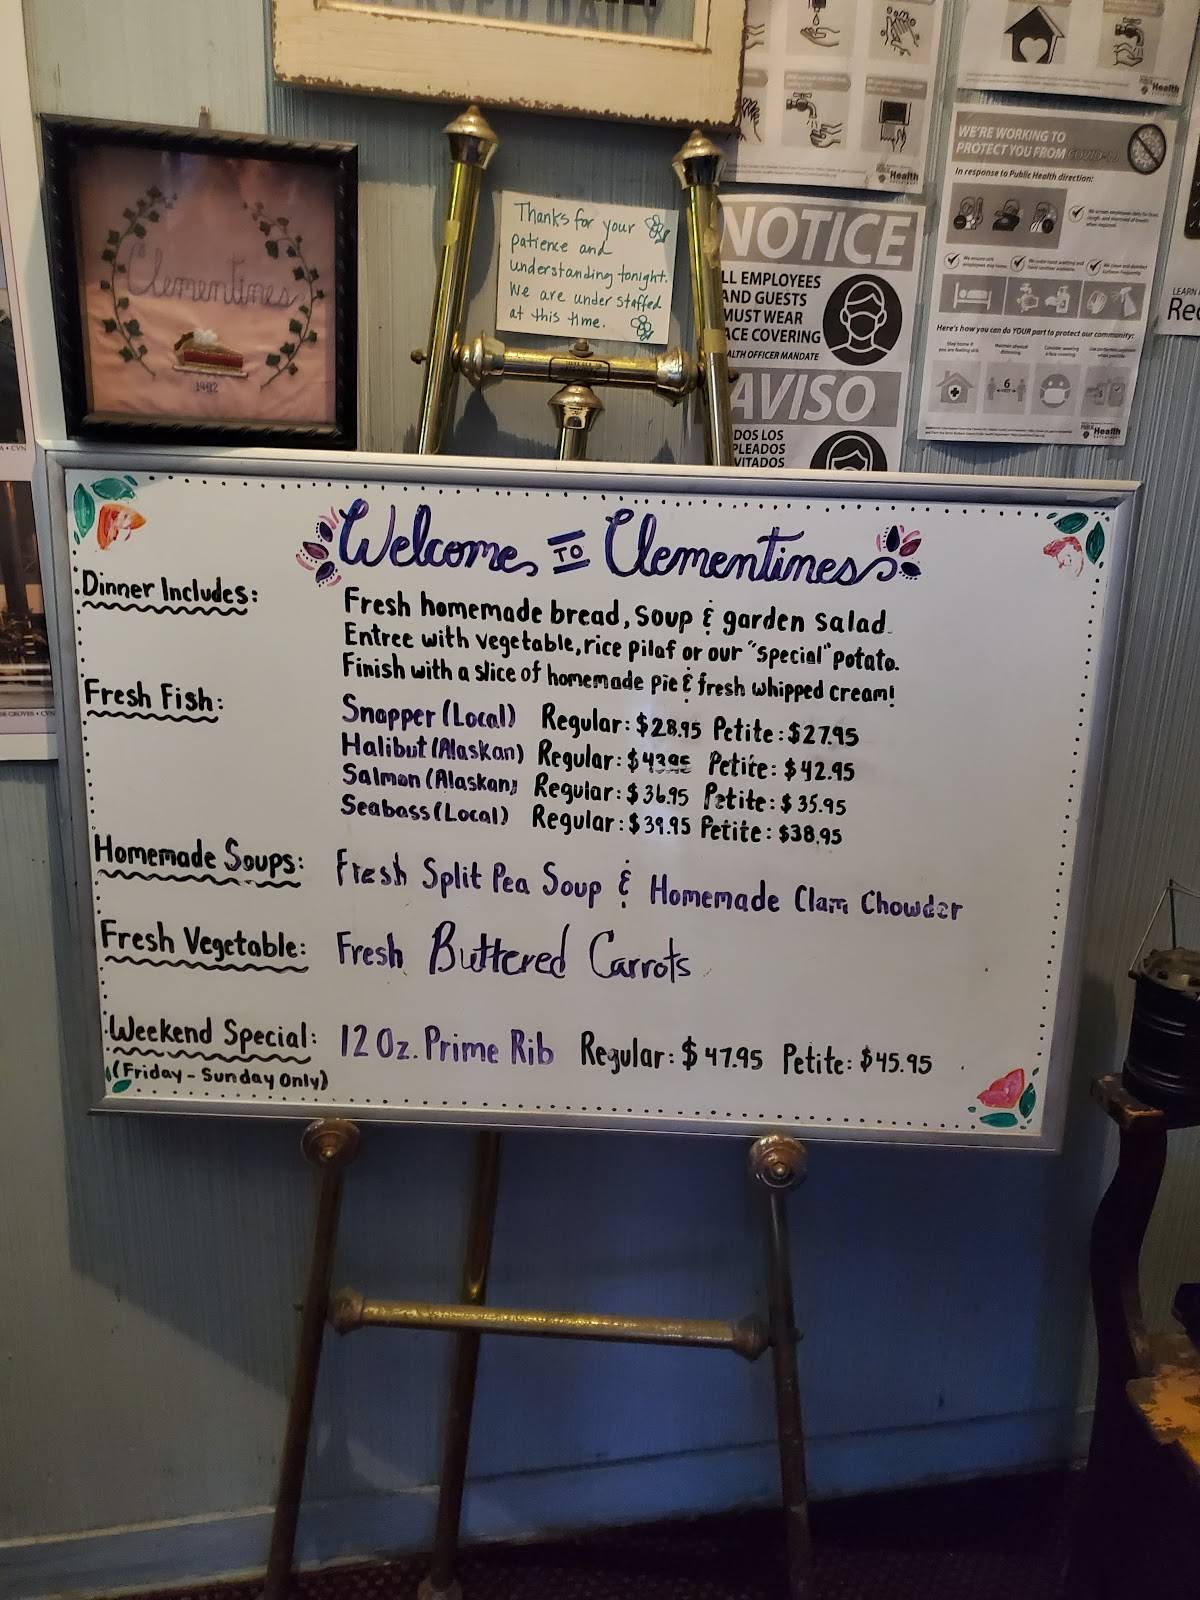 SERVED DAILY
Clementines
1982
Thanks for your
patience and
understanding tonight.
We are under staffed
at this time.
Health
Health
NOTICE
ALL EMPLOYEES
AND GUESTS
MUST WEAR
FACE COVERING
HEALTH OFFICER MANDATE
AVISO
TODOS LOS
EMPLEADOS
INVITADOS
WE'RE WORKING TO
PROTECT YOU FROM COVID-19
In response to Public Health direction:
Here's how you can do YOUR part to protect our community:
Stay home if
you are feeling sick
Maintain physical
distancing
6
Health
LEARN
Rec
Welcome TO Clementines
Dinner Includes:
Fresh homemade bread, soup & garden salad.
Entree with vegetable, rice pilaf or our "special" potato.
Finish with a slice of homemade pie & fresh whipped cream!
Fresh Fish:
Snapper (Local) Regular: $28.95 Petite: $27.95
Halibut (Alaskan) Regular: $43.95 Petite: $42.95
Salmon (Alaskan) Regular: $36.95 Petite: $35.95
Seabass (Local) Regular: $39.95 Petite: $38.95
Homemade Soups: Fresh Split Pea Soup & Homemade Clam Chowder
Fresh Vegetable: Fresh Buttered Carrots
Weekend Special: 12 Oz. Prime Rib Regular: $47.95 Petite: $45.95
(Friday - Sunday Only)